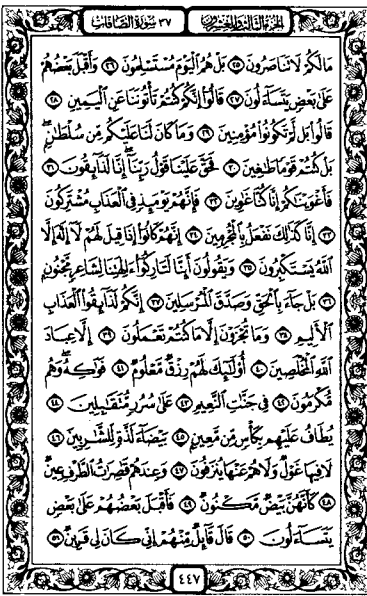 الجزء الثالث والعشرون
٣٧ سورة الصافات
مَا لَكُمْ لَا تَنَاصَرُونَ ٢٥ بَلْ هُمُ الْيَوْمَ مُسْتَسْلِمُونَ ٢٦ وَأَقْبَلَ بَعْضُهُمْ
عَلَىٰ بَعْضٍ يَتَسَاءَلُونَ ٢٧ قَالُوا إِنَّكُمْ كُنتُمْ تَأْتُونَنَا عَنِ الْيَمِينِ ٢٨
قَالُوا بَل لَّمْ تَكُونُوا مُؤْمِنِينَ ٢٩ وَمَا كَانَ لَنَا عَلَيْكُم مِّن سُلْطَانٍ ۖ
بَلْ كُنتُمْ قَوْمًا طَاغِينَ ٣٠ فَحَقَّ عَلَيْنَا قَوْلُ رَبِّنَا ۖ إِنَّا لَذَائِقُونَ ٣١
فَأَغْوَيْنَاكُمْ إِنَّا كُنَّا غَاوِينَ ٣٢ فَإِنَّهُمْ يَوْمَئِذٍ فِي الْعَذَابِ مُشْتَرِكُونَ
٣٣ إِنَّا كَذَٰلِكَ نَفْعَلُ بِالْمُجْرِمِينَ ٣٤ إِنَّهُمْ كَانُوا إِذَا قِيلَ لَهُمْ لَا إِلَٰهَ إِلَّا
اللَّهُ يَسْتَكْبِرُونَ ٣٥ وَيَقُولُونَ أَئِنَّا لَتَارِكُو آلِهَتِنَا لِشَاعِرٍ مَّجْنُونٍ
٣٦ بَلْ جَاءَ بِالْحَقِّ وَصَدَّقَ الْمُرْسَلِينَ ٣٧ إِنَّكُمْ لَذَائِقُو الْعَذَابِ
الْأَلِيمِ ٣٨ وَمَا تُجْزَوْنَ إِلَّا مَا كُنتُمْ تَعْمَلُونَ ٣٩ إِلَّا عِبَادَ
اللَّهِ الْمُخْلَصِينَ ٤٠ أُولَٰئِكَ لَهُمْ رِزْقٌ مَّعْلُومٌ ٤١ فَوَاكِهُ ۖ وَهُم
مُّكْرَمُونَ ٤٢ فِي جَنَّاتِ النَّعِيمِ ٤٣ عَلَىٰ سُرُرٍ مُّتَقَابِلِينَ ٤٤
يُطَافُ عَلَيْهِم بِكَأْسٍ مِّن مَّعِينٍ ٤٥ بَيْضَاءَ لَذَّةٍ لِّلشَّارِبِينَ ٤٦
لَا فِيهَا غَوْلٌ وَلَا هُمْ عَنْهَا يُنزَفُونَ ٤٧ وَعِندَهُمْ قَاصِرَاتُ الطَّرْفِ عِينٌ
٤٨ كَأَنَّهُنَّ بَيْضٌ مَّكْنُونٌ ٤٩ فَأَقْبَلَ بَعْضُهُمْ عَلَىٰ بَعْضٍ
يَتَسَاءَلُونَ ٥٠ قَالَ قَائِلٌ مِّنْهُمْ إِنِّي كَانَ لِي قَرِينٌ ٥١
٤٤٧